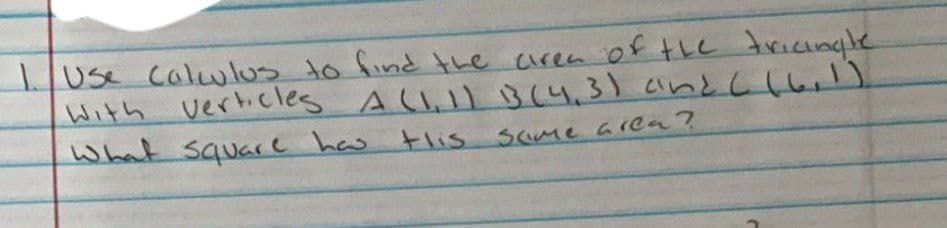 1. Use Calculus to find the area of the triangle
With verticles A(1,1) B(4,3) and C(6,1)
What square has this same area?